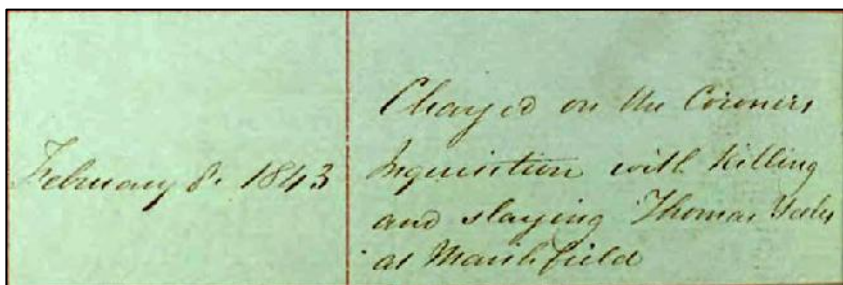 February 8. 1843
Charged on the Coroners
Inquisition with killing
and slaying Thomas
at Marshfield